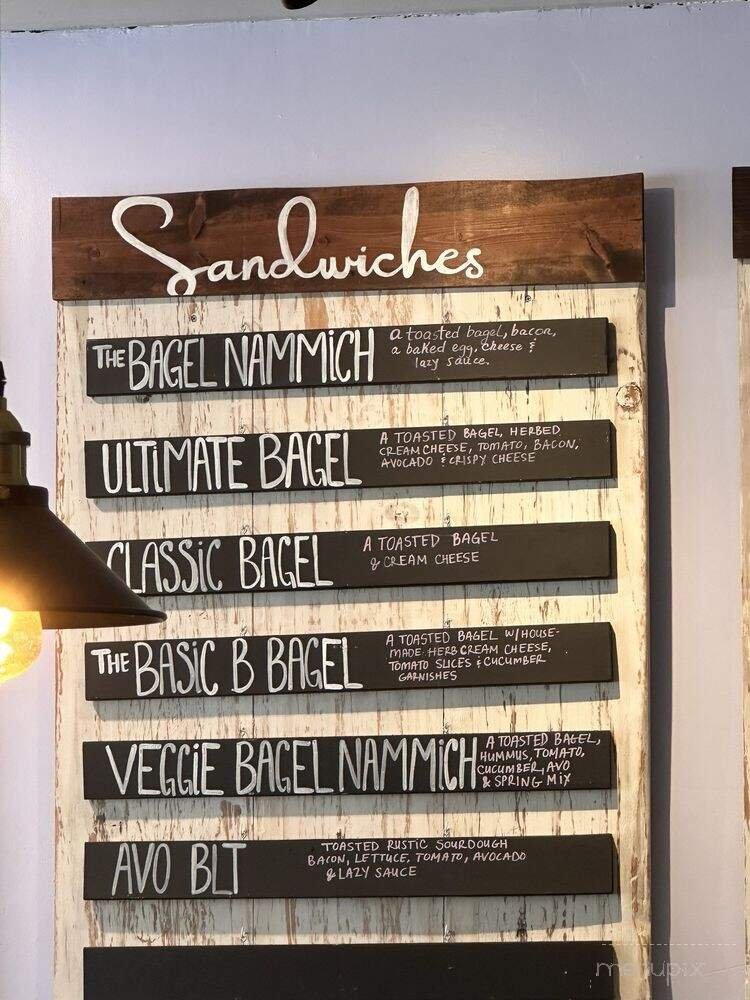 Sandwiches
THE BAGEL NAMMICH
a toasted bagel, bacon,
a baked egg, cheese &
lazy sauce.
ULTIMATE BAGEL
A TOASTED BAGEL, HERBED
CREAM CHEESE, TOMATO, BACON,
AVOCADO & CRISPY CHEESE
CLASSIC BAGEL
A TOASTED BAGEL
& CREAM CHEESE
THE BASIC B BAGEL
A TOASTED BAGEL W/HOUSE-
MADE HERB CREAM CHEESE,
TOMATO SLICES & CUCUMBER
GARNISHES
VEGGIE BAGEL NAMMICH
A TOASTED BAGEL,
HUMMUS, TOMATO,
CUCUMBER, AVO
& SPRING MIX
AVO BLT
TOASTED RUSTIC SOURDOUGH
BACON, LETTUCE, TOMATO, AVOCADO
& LAZY SAUCE
menupix